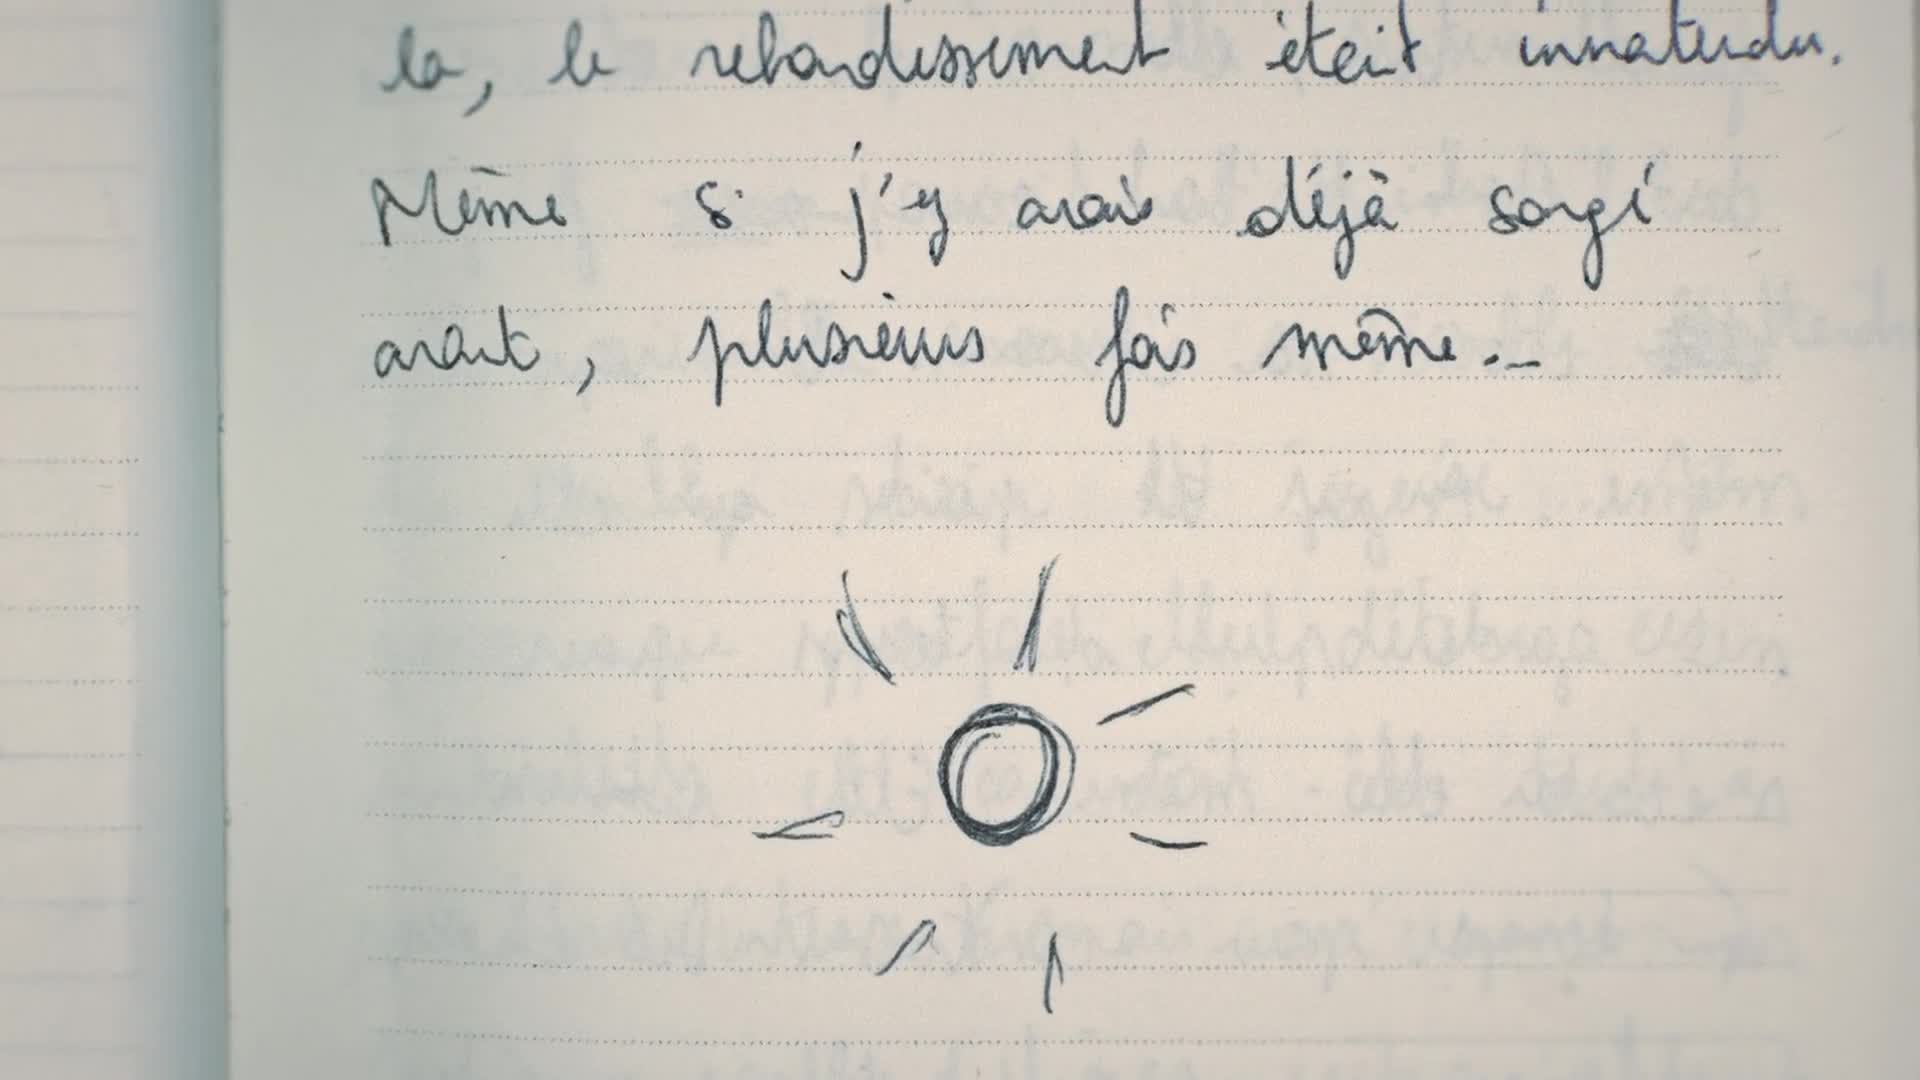 la, le rebondissement était innatendu.
Même si j'y avais déjà songé
avant, plusieurs fois même...